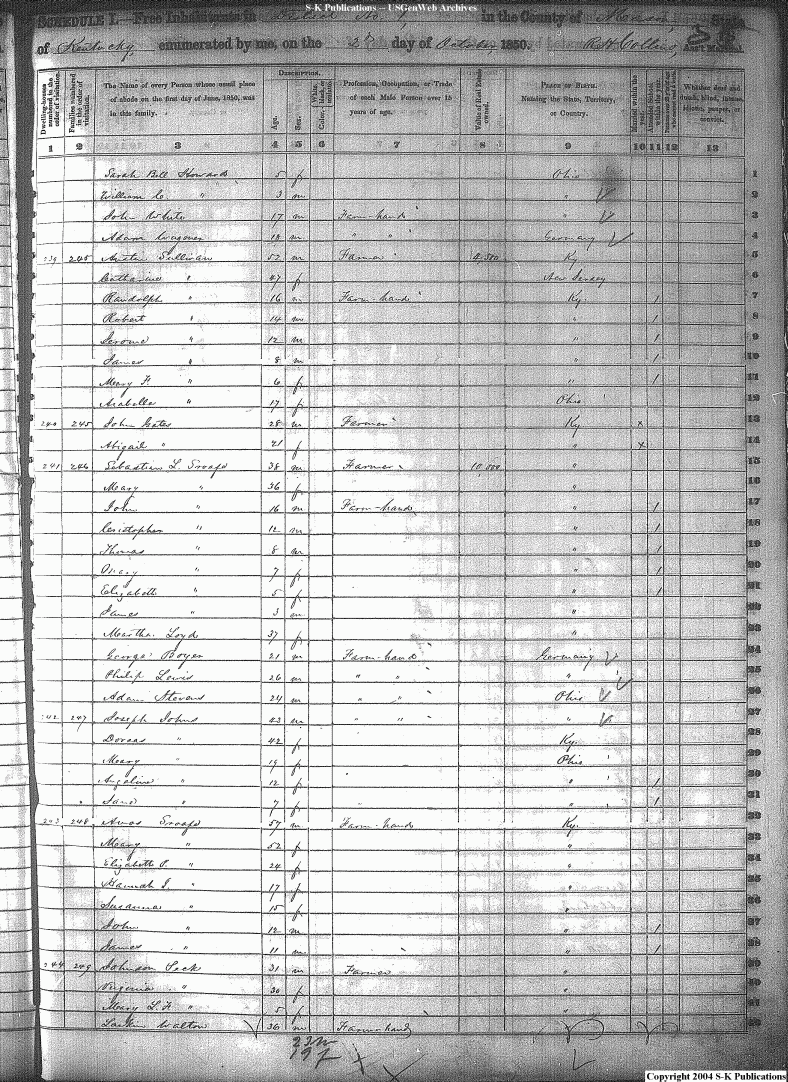 S-K Publications -- USGenWeb Archives
SCHEDULE I.—Free Inhabitants in District No 1 in the County of Mason State
of Kentucky, enumerated by me, on the 2d day of October, 1850. R H Collins Ass't Marshal.
Dwelling-houses numbered in the order of visitation. Families numbered in the order of visitation. The Name of every Person whose usual place of abode on the first day of June, 1850, was in this family. DESCRIPTION. Age. Sex. Profession, Occupation, or Trade of each Male Person over 15 years of age. Value of Real Estate owned. PLACE OF BIRTH. Naming the State, Territory, or Country. Married within the year.
1 2 3 4 5 6 7 8 9 10 11 12 13
Sarah Bell Howard 5 f Ohio 1
William C. " 3 m " 2
John White 17 m Farm-hand " 3
Adam Wagoner m " " Germany 4
239 Sullivan 52 m Farmer Ky 5
Catharine " 47 f New Jersey 6
Randolph " 16 m Farm-hand Ky. 1 7
Robert " 14 m " 1 8
Jerome " 12 m " 1 9
James " 8 m " 1 10
Mary F. " 6 f " 1 11
Arabella " 17 f Ohio 12
240 245 John Gates 28 m Farmer Ky x 13
Abigail " 21 f " x 14
241 246 Sebastian L. 38 m Farmer 10,000 " 15
Mary " 36 f " 16
John " 16 m Farm-hand " 1 17
Cristopher " 12 m " 1 18
Thomas " 8 m " 1 19
" 7 f " 1 20
Elizabeth " 5 f " 1 21
James " 3 m " 22
Martha Loyd 37 f " 23
George Boyer 21 m Farm-hand Germany 24
Philip Lewis 26 m " " " 25
Adam Stevens 24 m " " Ohio 26
242 247 Joseph Johns 43 m " " " 27
Dorcas " 42 f Ky. 28
Mary " 19 f Ohio 29
Angeline " 12 f " 1 30
" 7 f " 1 31
243 248 Amos 57 m Farm-hand Ky.
Mary " 52 f "
Elizabeth P. " 24 f "
Hannah J. " 17 f "
Susanna " 15 f "
John " 12 m " 1
James " 11 m " 1
244 249 Johnson Peck 31 m Farmer "
Virginia " 30 f "
Mary L. F. " 5 f "
Larkin Walton 36 m Farm-hand
22 m
19 f
Copyright 2004 S-K Publications